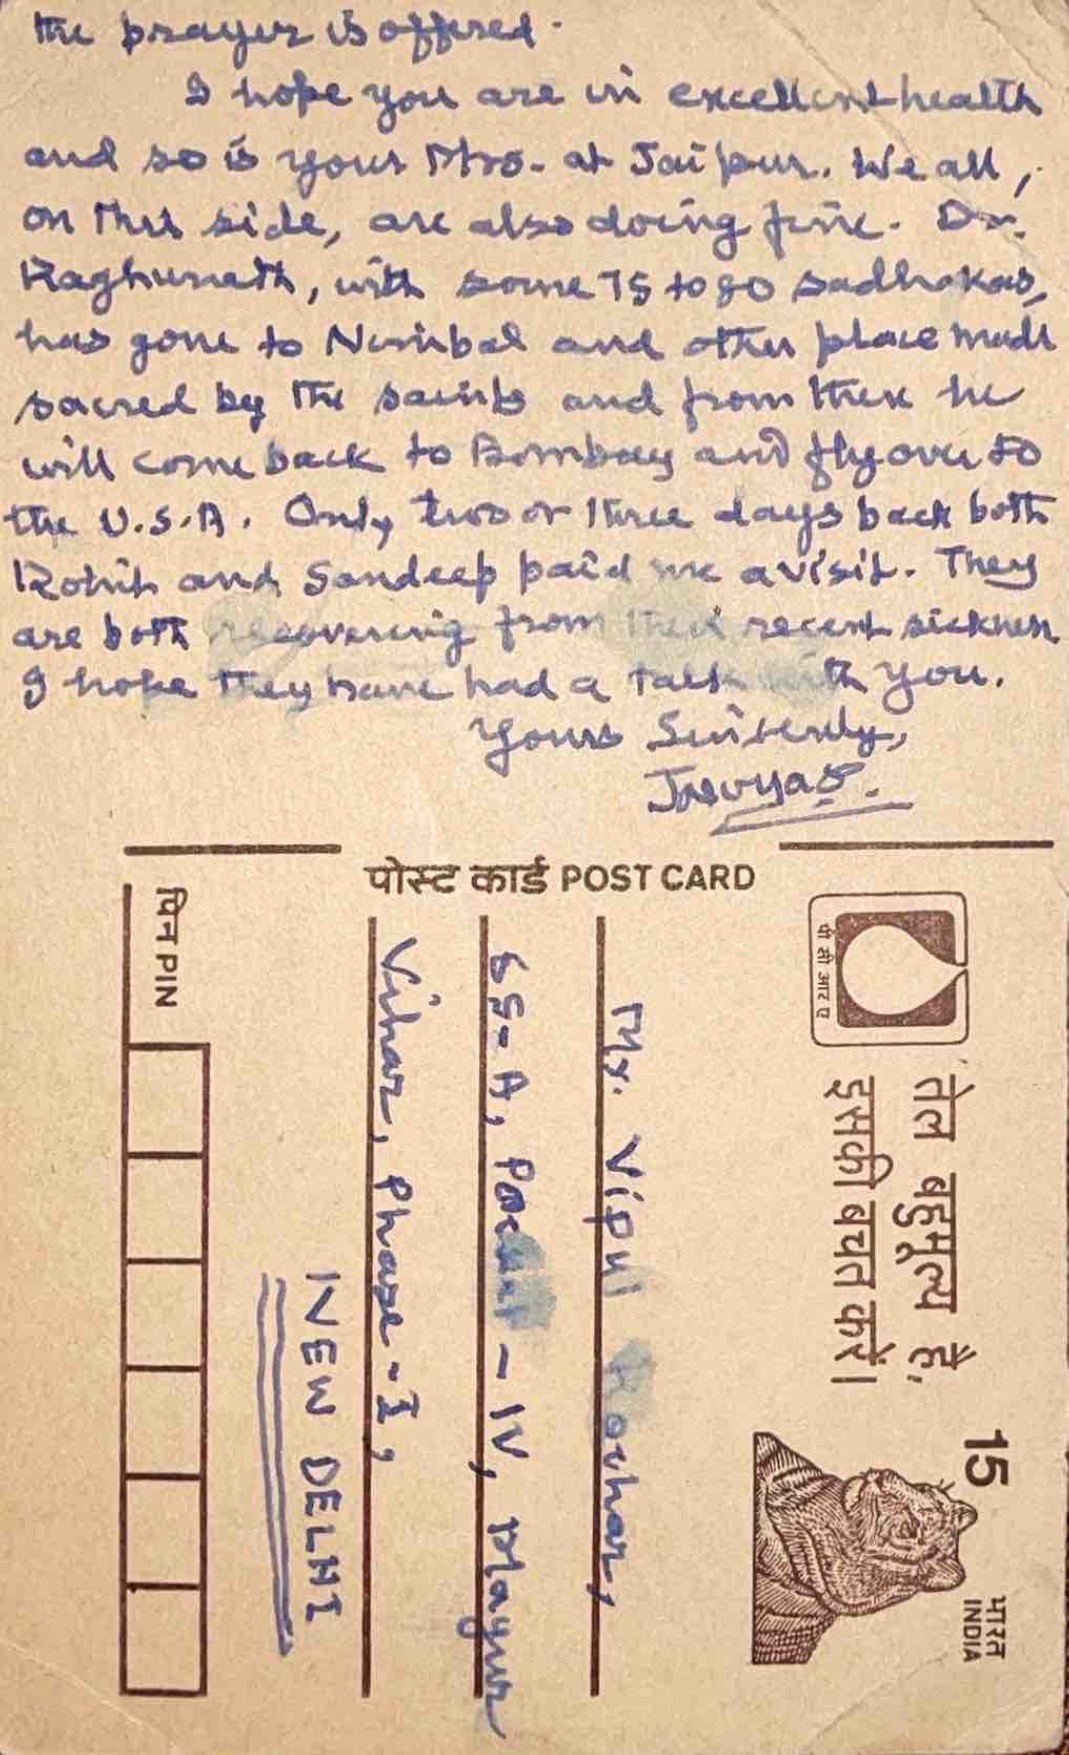 the prayer is offered.
I hope you are in excellent health
and so is your Mrs. at Jaipur. We all,
on this side, are also doing fine. Dr.
Raghunath, with some 75 to 80 sadhakas,
has gone to Nimbal and other place made
sacred by the saints and from there he
will come back to Bombay and fly over to
the U.S.A. Only two or three days back both
Rohit and Sandeep paid me a visit. They
are both recovering from their recent sickness
I hope they have had a talk with you.
Yours Sincerely,
पोस्ट कार्ड POST CARD
पी सी आर ए
तेल बहुमूल्य है,
इसकी बचत करें।
15
भारत
INDIA
Mr. Vipul Kochar,
65-A, Pocket - IV, Mayur
Vihar, Phase - I,
NEW DELHI
पिन PIN